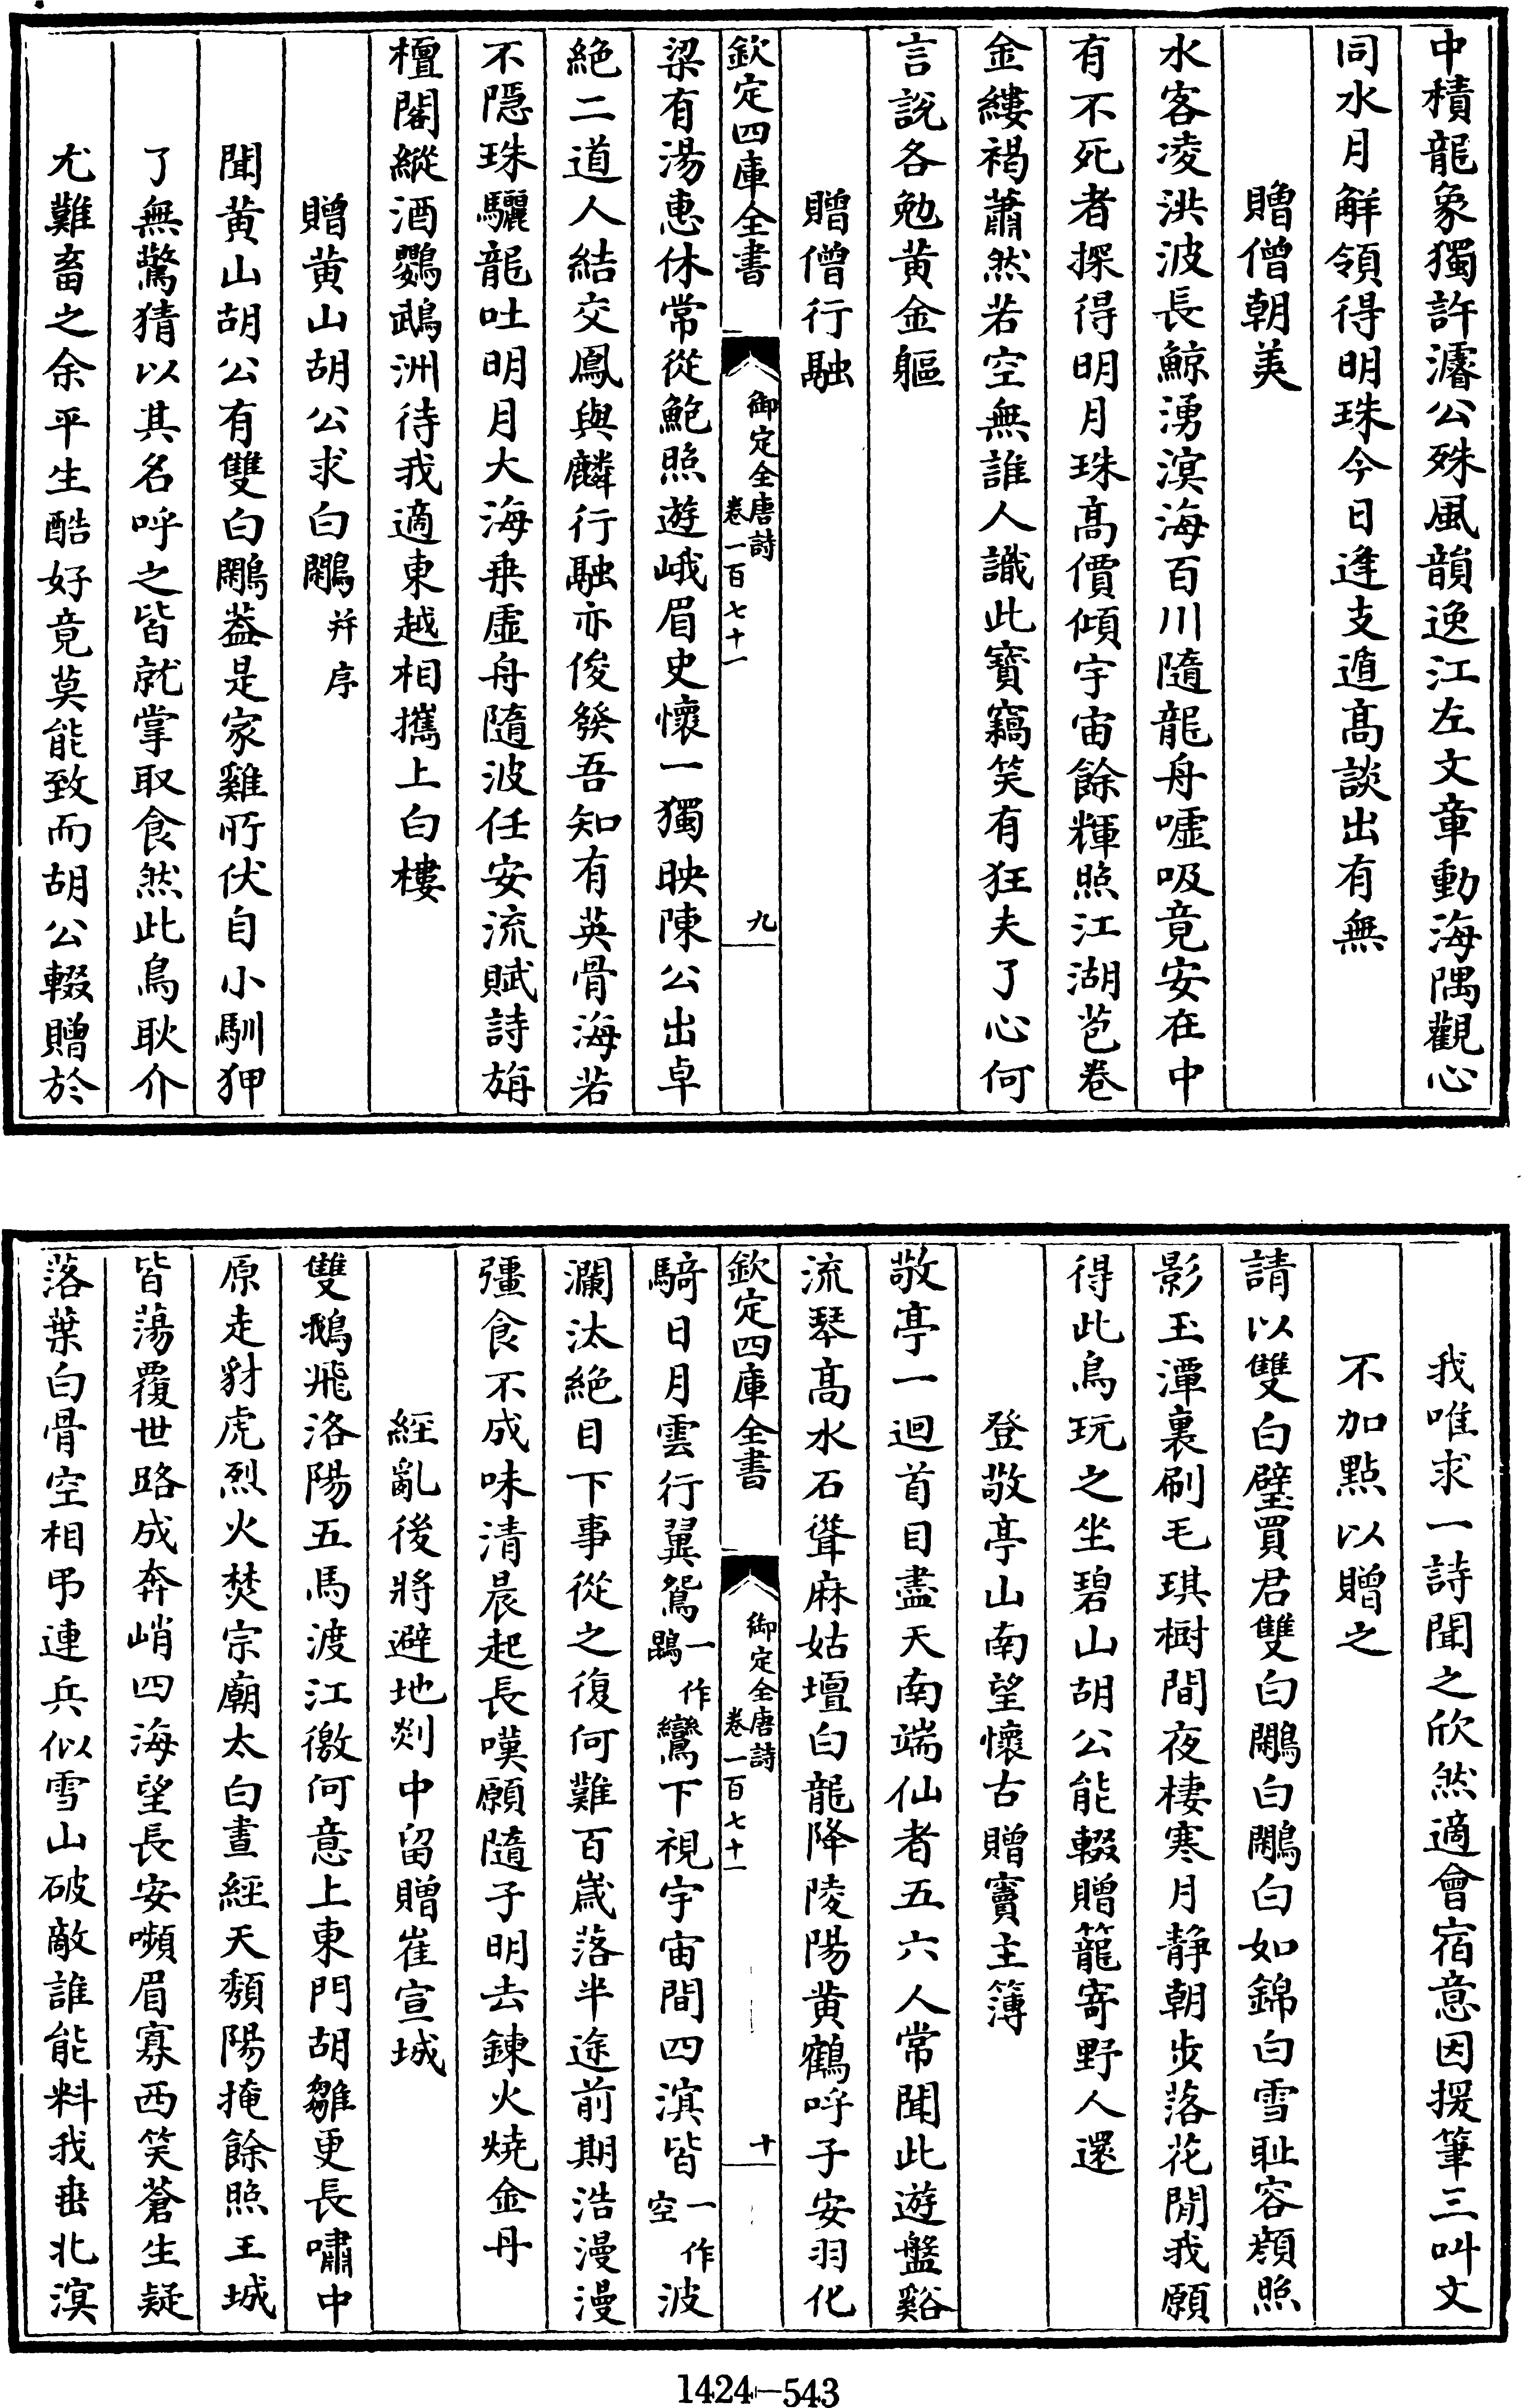 中積龍象獨許濬公殊風韻逸江左文章動海隅觀心
同水月解領得明珠今日逢支遁高談出有無
贈僧朝美
水客凌洪波長鯨湧溟海百川隨龍舟噓吸竟安在中
有不死者探得明月珠高價傾宇宙餘輝照江湖苞卷
金縷褐蕭然若空無誰人識此寶竊笑有狂夫了心何
言說各勉黃金軀
贈僧行融
欽定四庫全書
御定全唐詩
卷一百七十一
九
梁有湯惠休常從鮑照遊峨眉史懷一獨映陳公出卓
絕二道人結交鳳與麟行融亦俊發吾知有英骨海若
不隱珠驪龍吐明月大海乗虛舟隨波任安流賦詩旃
檀閣縱酒鸚鵡洲待我適東越相攜上白樓
贈黃山胡公求白鷴并序
聞黃山胡公有雙白鷴葢是家雞所伏自小馴狎
了無驚猜以其名呼之皆就掌取食然此鳥耿介
尤難畜之余平生酷好竟莫能致而胡公輟贈於
我唯求一詩聞之欣然適會宿意因援筆三叫文
不加點以贈之
請以雙白璧買君雙白鷴白鷴白如錦白雪耻容顏照
影玉潭裏刷毛琪樹間夜棲寒月静朝步落花閒我願
得此鳥玩之坐碧山胡公能輟贈籠寄野人還
登敬亭山南望懷古贈竇主簿
敬亭一迴首目盡天南端仙者五六人常聞此遊盤谿
流琴高水石聳麻姑壇白龍降陵陽黃鶴呼子安羽化
欽定四庫全書
御定全唐詩
卷一百七十一
十
騎日月雲行翼鴛一作鵷鸞下視宇宙間四溟皆一作空波
瀾汰絕目下事從之復何難百嵗落半途前期浩漫漫
彊食不成味清晨起長嘆願隨子明去鍊火燒金丹
經亂後將避地剡中留贈崔宣城
雙鵝飛洛陽五馬渡江徼何意上東門胡雛更長嘯中
原走豺虎烈火焚宗廟太白晝經天頹陽掩餘照王城
皆蕩覆世路成奔峭四海望長安嚬眉寡西笑蒼生疑
落葉白骨空相弔連兵似雪山破敵誰能料我垂北溟
1424—543